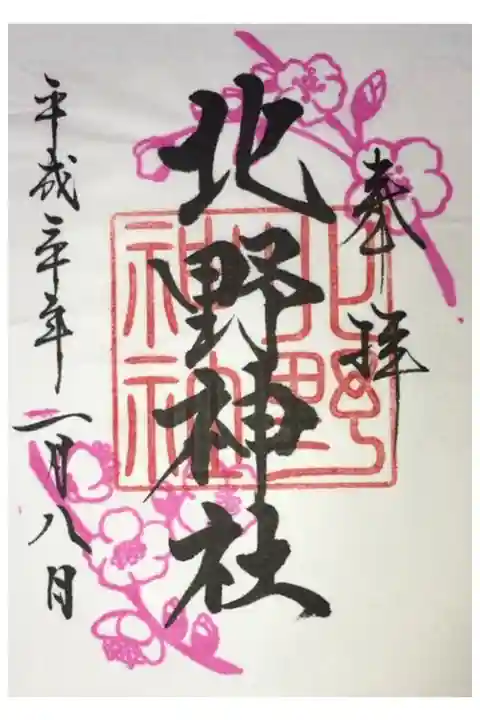 奉拝
北野神社
北野
神社
平成三十年一月八日